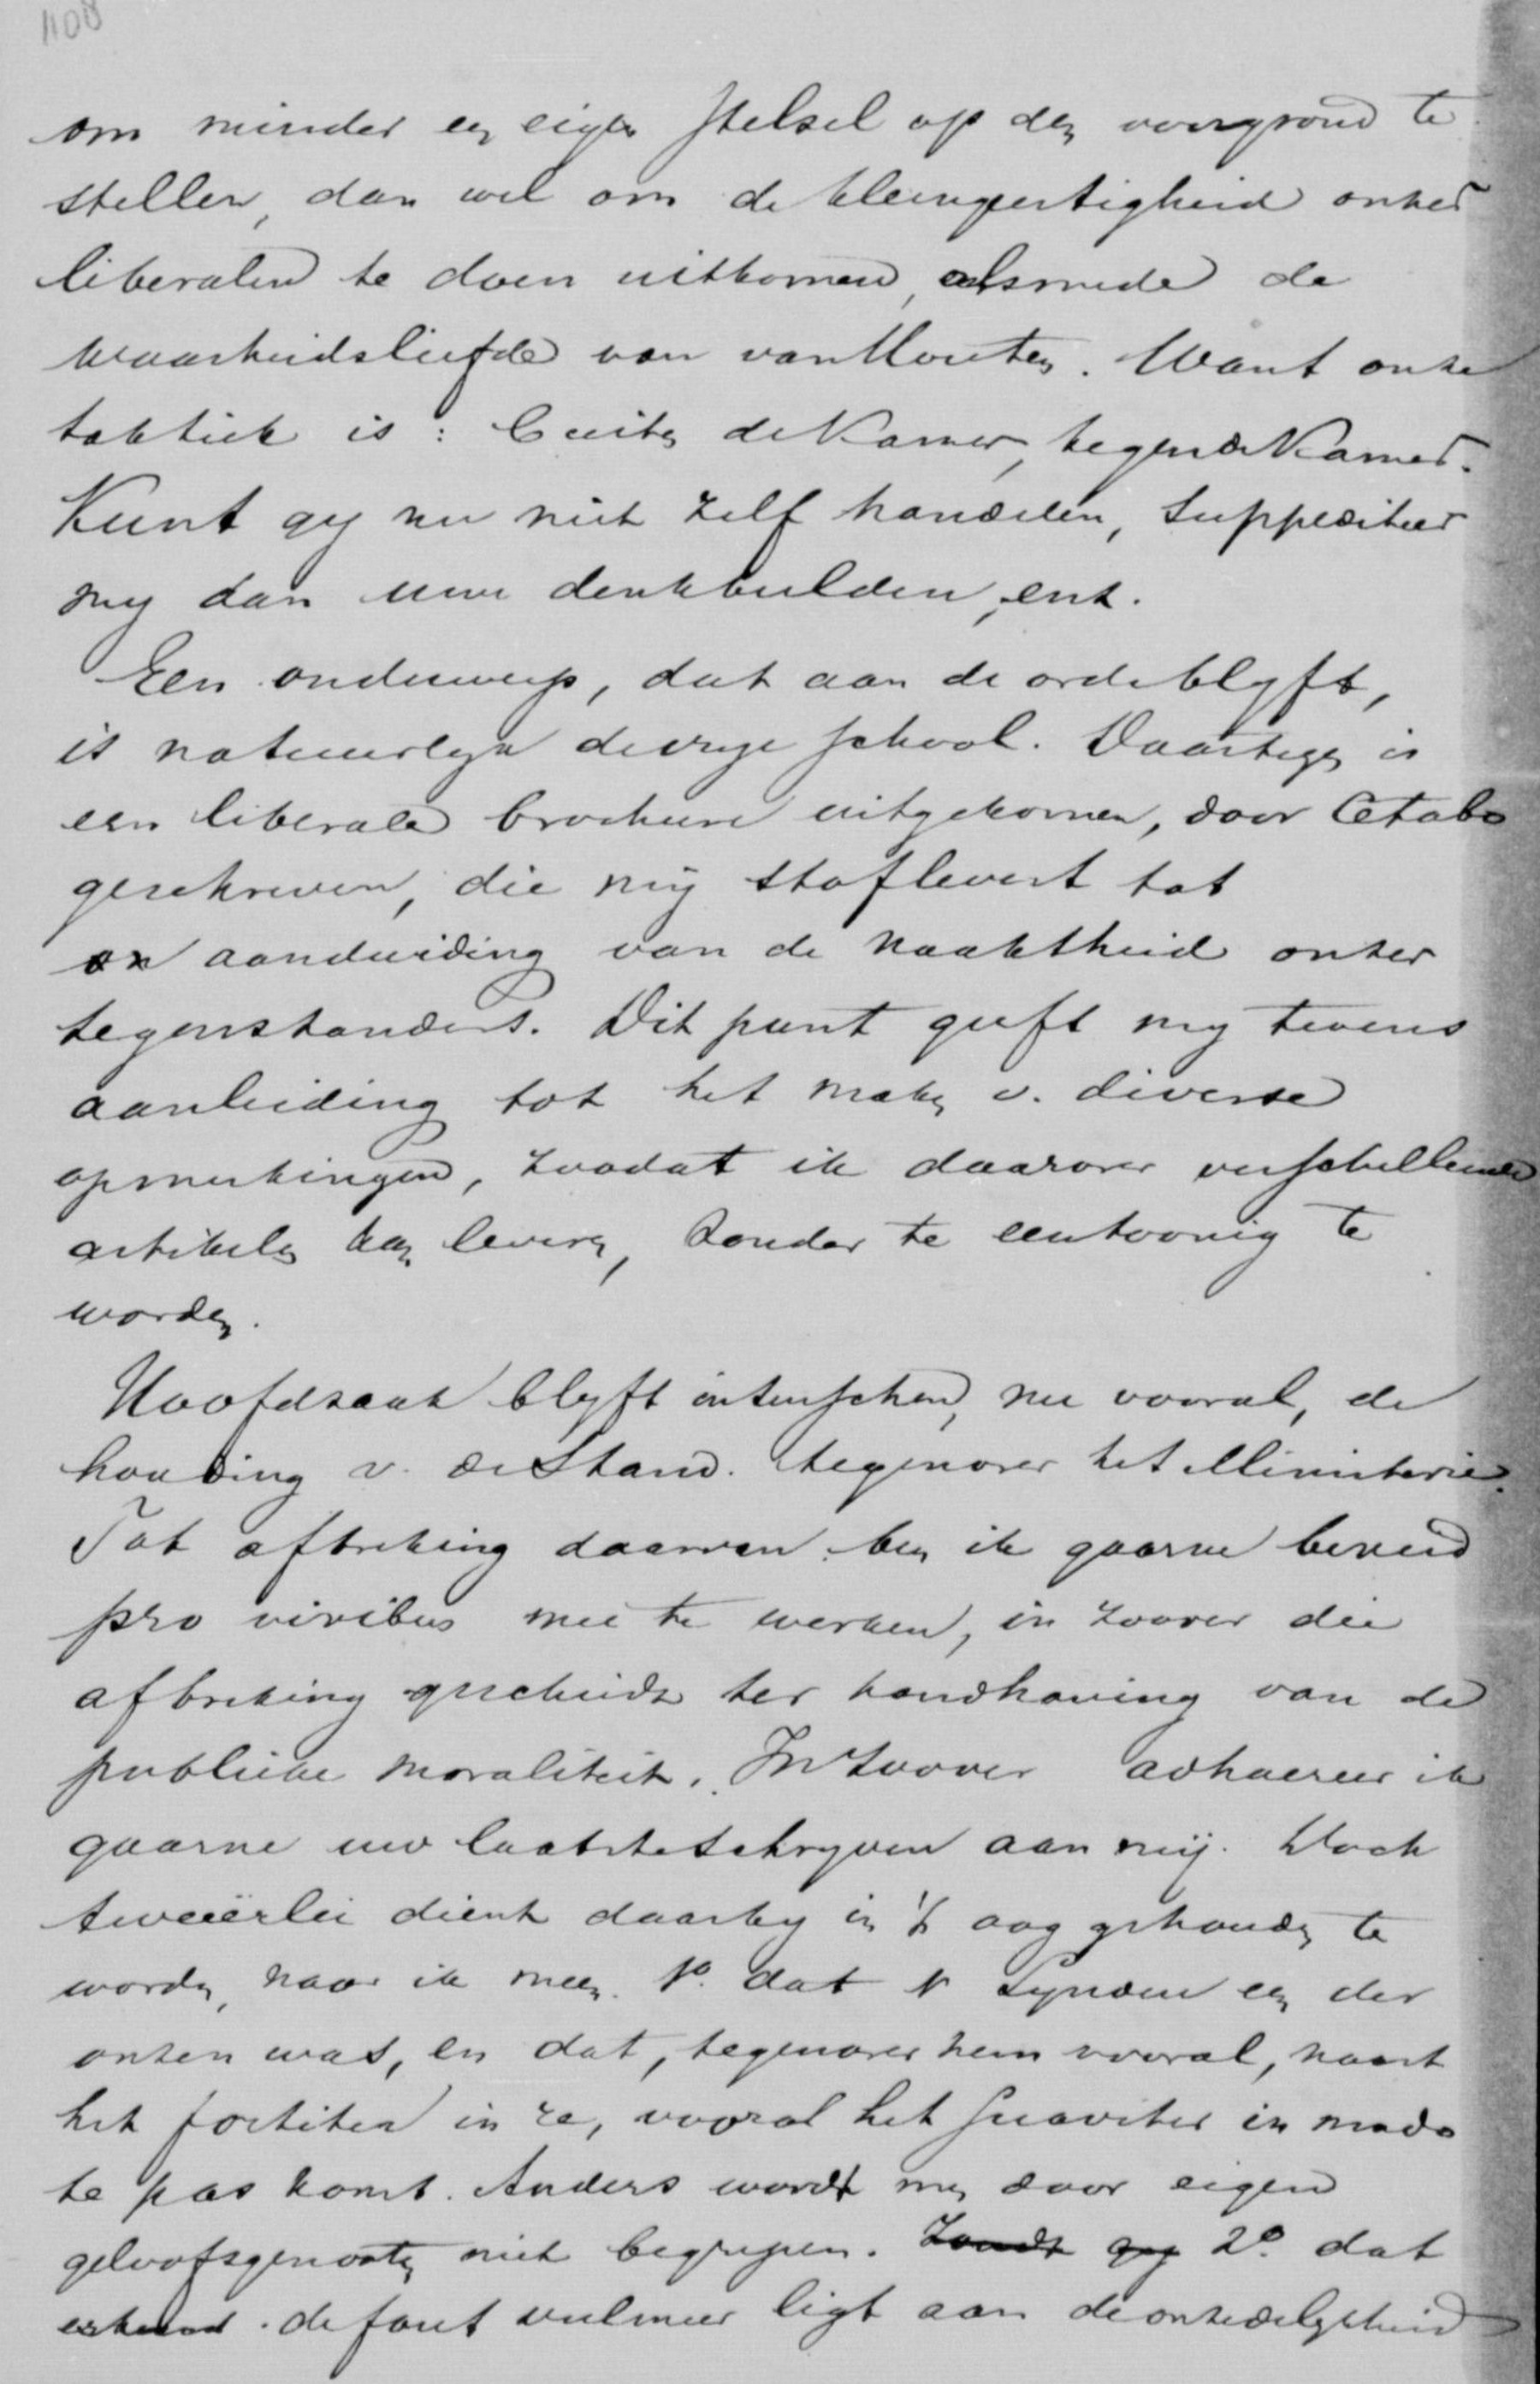 1108
om minder een eigen stelsel op den voorgrond te
stellen, dan wel om de kleingeestigheid onzer
liberalen te doen uitkomen, alsmede de
waarheidsliefde van van Houten. Want onze
taktiek is: buiten de Kamer, tegen de Kamer.
Kunt gy nu niet zelf handelen, suppediteer
my dan uwe denkbeelden, enz.
Een onderwerp, dat aan de orde blyft,
is natuurlyk de vrye school. Daartegen is
een liberale brochure uitgekomen, door
geschreven, die mij stof levert tot
aanduiding van de naaktheid onzer
tegenstanders. Dit punt geeft my tevens
aanleiding tot het maken v. diverse
opmerkingen, zoodat ik daarover verschillende
artikelen kan leveren, zonder te eentoonig te
worden.
Hoofdzaak blyft intusschen, nu vooral, de
houding v. de Stand. tegenover het Ministerie.
Tot afbreking daarvan ben ik gaarne bereid
pro viribus mee te werken, in zoover die
afbreking geschiedt ter handhaving van de
publieke moraliteit. In zoover adhaereer ik
gaarne uw laatste schryven aan mij. Doch
tweeërlei dient daarby in 't oog gehouden te
worden, naar ik meen. 1o. dat v Lynden een der
onzen was, en dat, tegenover hem vooral, naast
het fortiter in re, vooral het suaviter in modo
te pas komt. Anders wordt men door eigen
geloofsgenooten niet begrepen. Zoudt gy 2o. dat
de fout veelmeer ligt aan de onzedelykheid